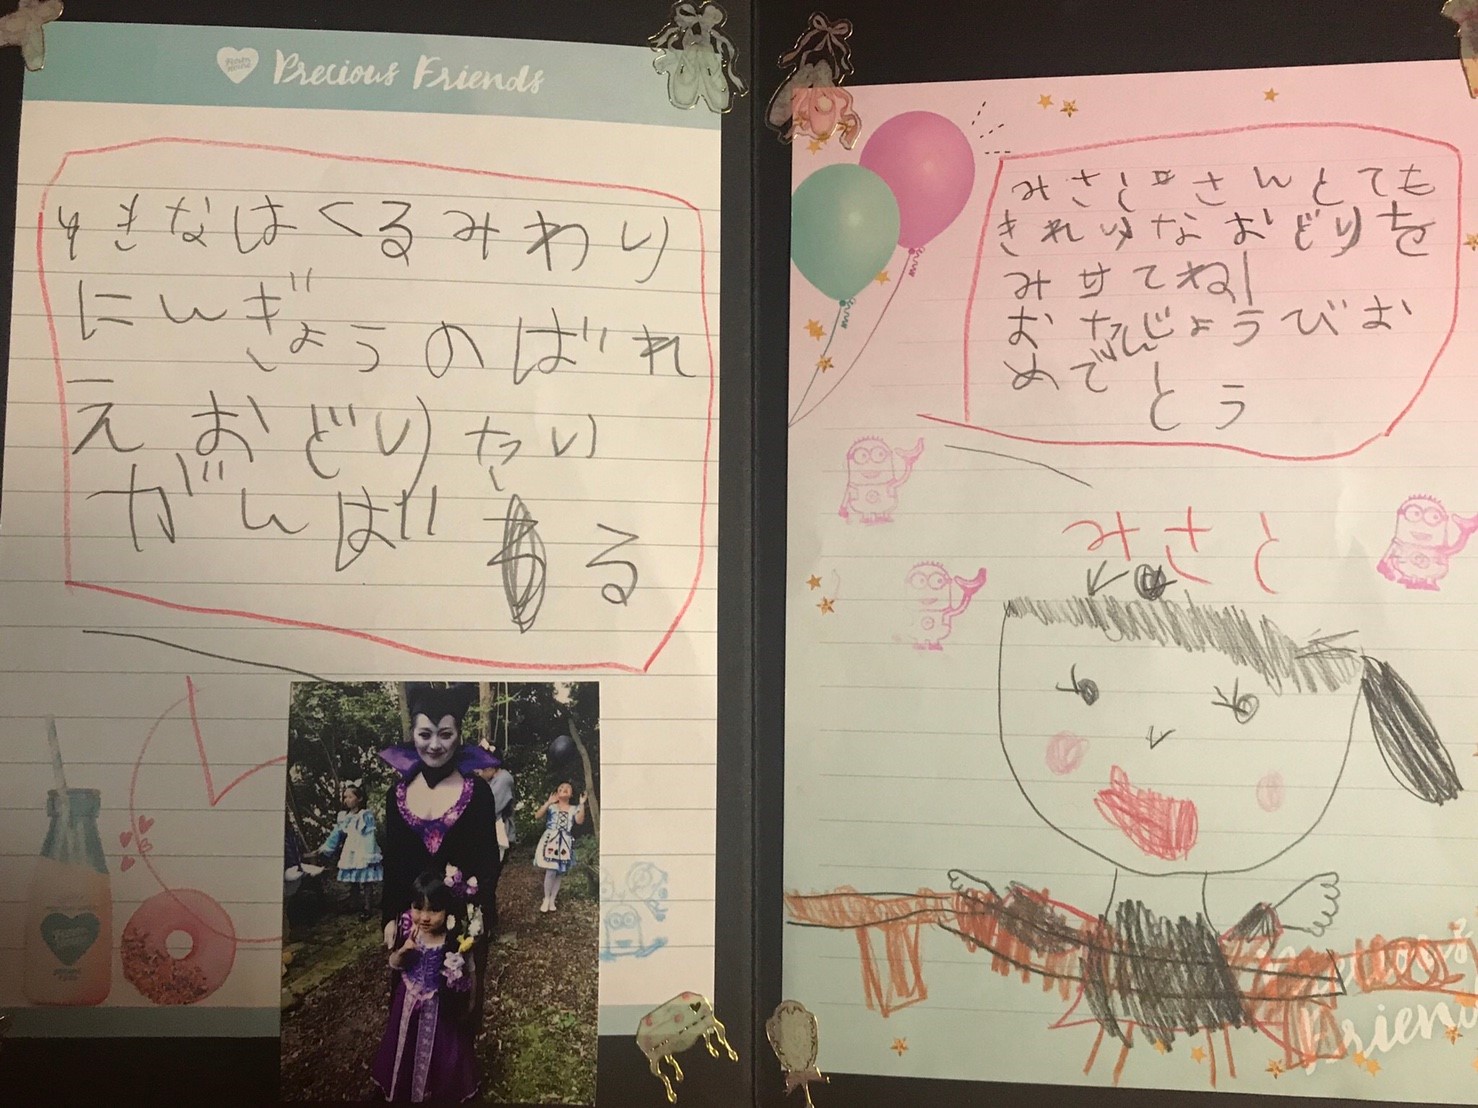 Precious Friends
ゆきなはくるみわり
にんぎょうのばれ
えおどりたい
がんばる
みさとさんとても
きれいなおどりを
みせてね!
おたんじょうびお
めでとう
みさと
Frien